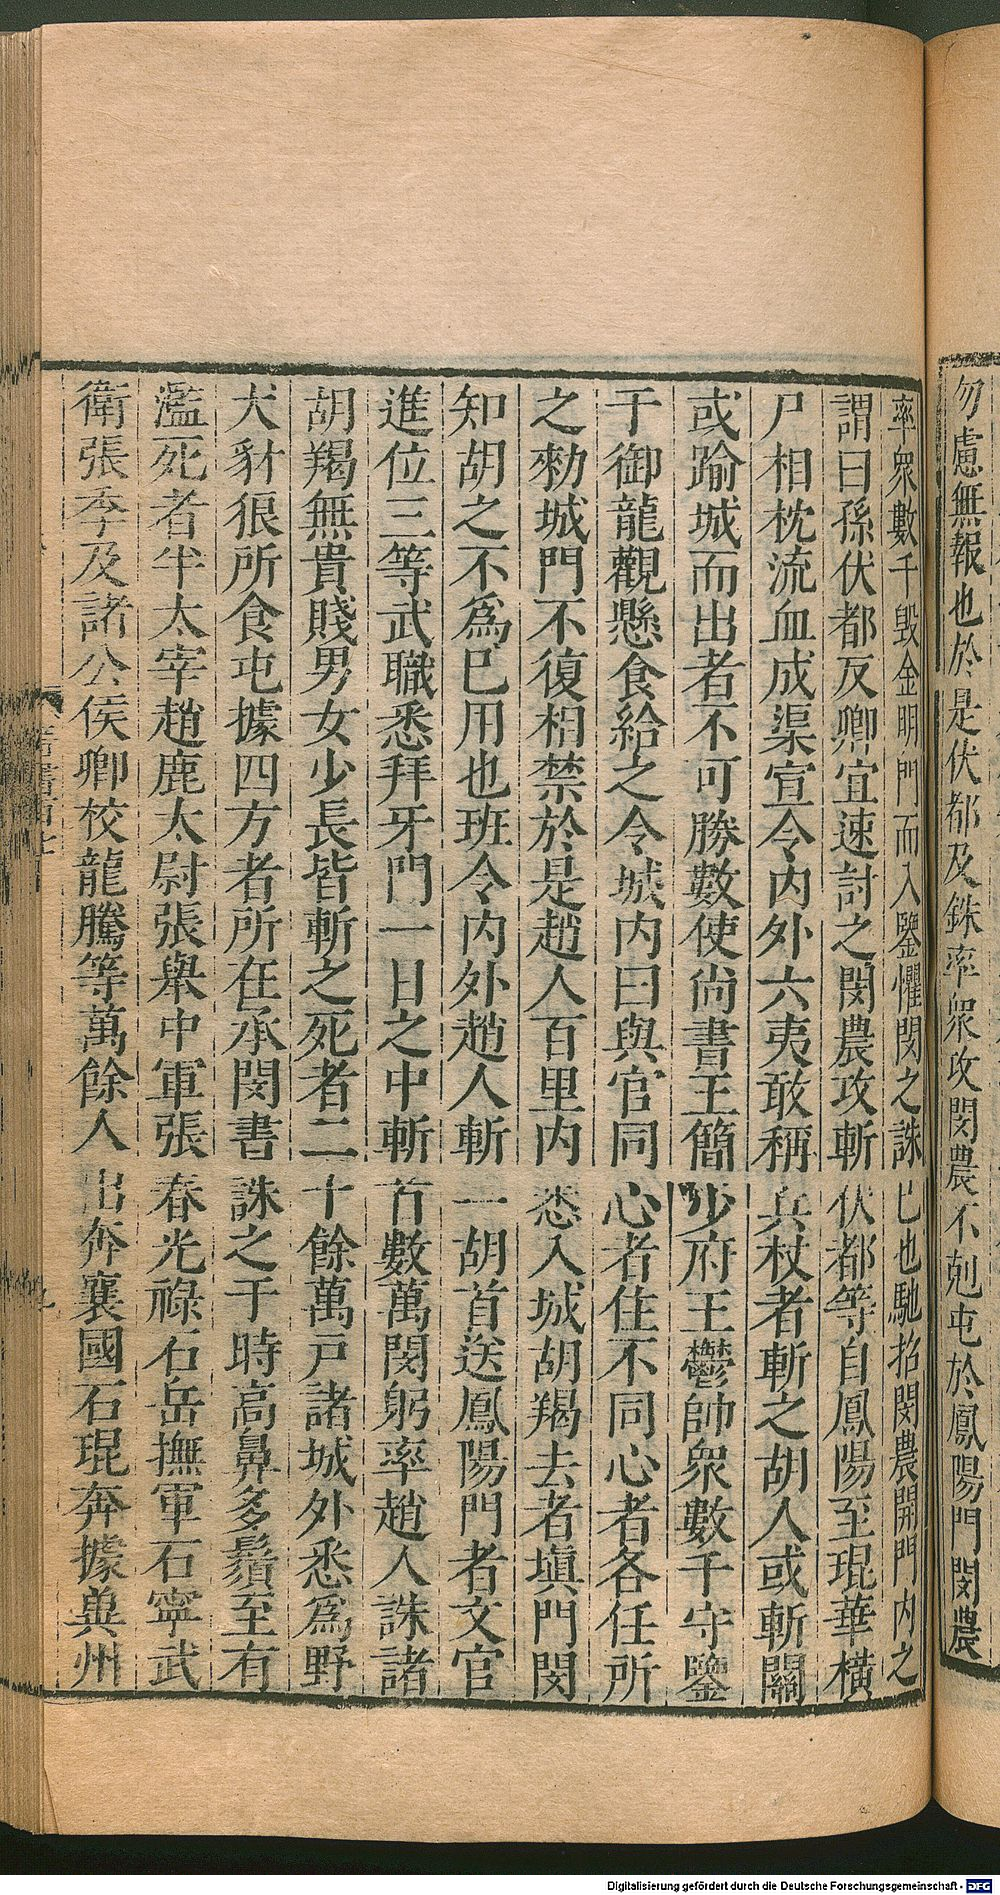 勿慮無報也於是伏都及銖率衆攻閔農不剋屯於鳳陽門閔農
率衆數千毀金明門而入鑒懼閔之誅己也馳招閔農開門內之
謂曰孫伏都反卿宜速討之閔農攻斬伏都等自鳳陽至琨華橫
尸相枕流血成渠宣令內外六夷敢稱兵杖者斬之胡人或斬關
或踰城而出者不可勝數使尚書王簡少府王鬱帥衆數千守鑒
于御龍觀懸食給之令城內曰與官同心者住不同心者各任所
之勑城門不復相禁於是趙人百里內悉入城胡羯去者塡門閔
知胡之不爲已用也班令內外趙人斬一胡首送鳳陽門者文官
進位三等武職悉拜牙門一日之中斬首數萬閔躬率趙人誅諸
胡羯無貴賤男女少長皆斬之死者二十餘萬尸諸城外悉爲野
犬豺狼所食屯據四方者所在承閔書誅之于時高鼻多鬚至有
濫死者半太宰趙鹿太尉張舉中軍張春光祿石岳撫軍石寧武
衛張季及諸公侯卿校龍騰等萬餘人出奔襄國石琨奔據冀州
Digitalisierung gefördert durch die Deutsche Forschungsgemeinschaft - DFG